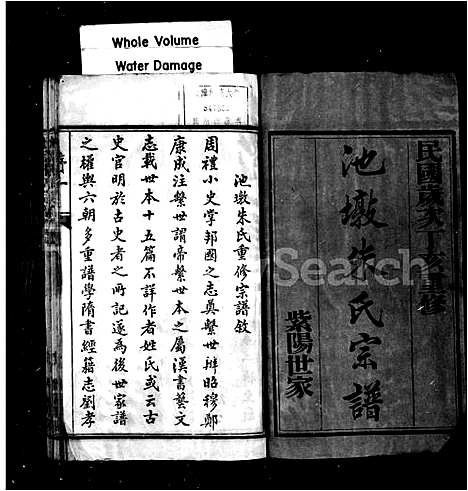 Whole Volume
Water Damage
民國歲次丁亥重修
池墩朱氏宗譜
紫陽世家
Search
池墩朱氏重修宗譜敘
周禮小史掌邦國之志奠繫世辨昭穆鄭
康成注繫世謂帝繫世本之屬漢書藝文
志載世本十五篇不詳作者姓氏或云古
史官明於古史者之所記遂為後世家譜
之權輿六朝多重譜學隋書經籍志劉孝